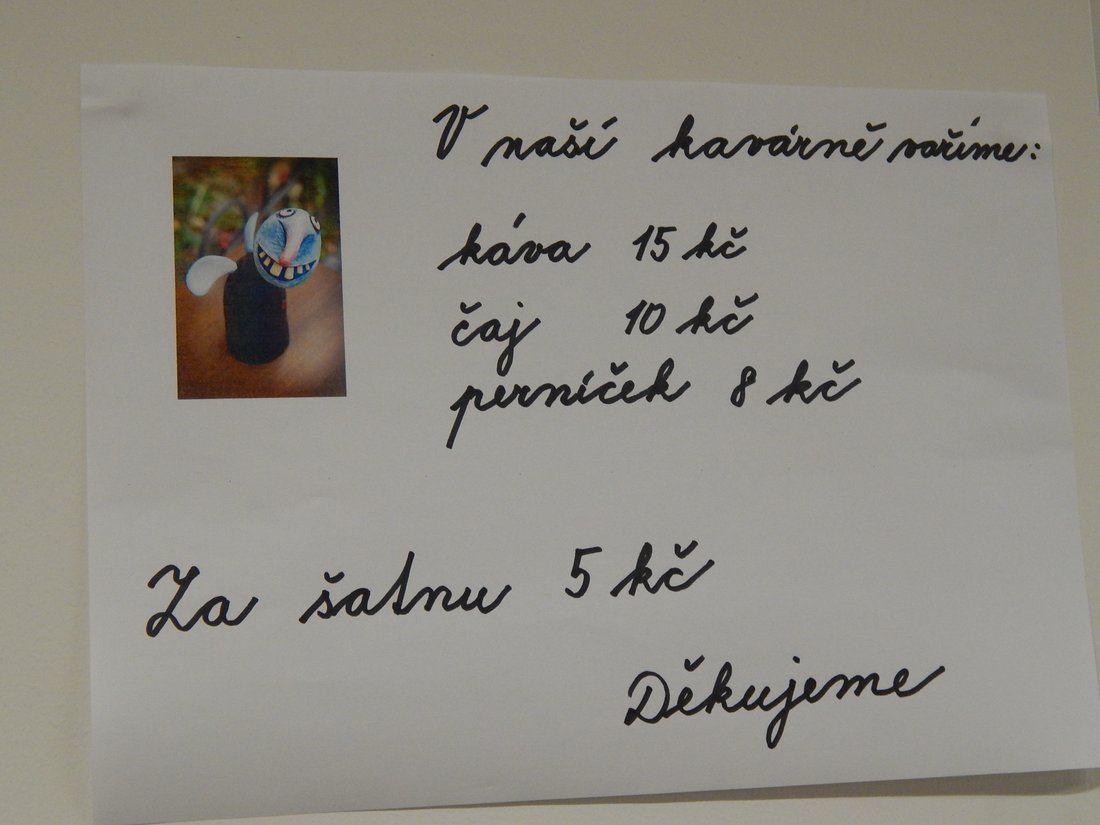 V naší kavárně vaříme:
káva 15 kč
čaj 10 kč
perníček 8 kč
Za šatnu 5 kč
Děkujeme